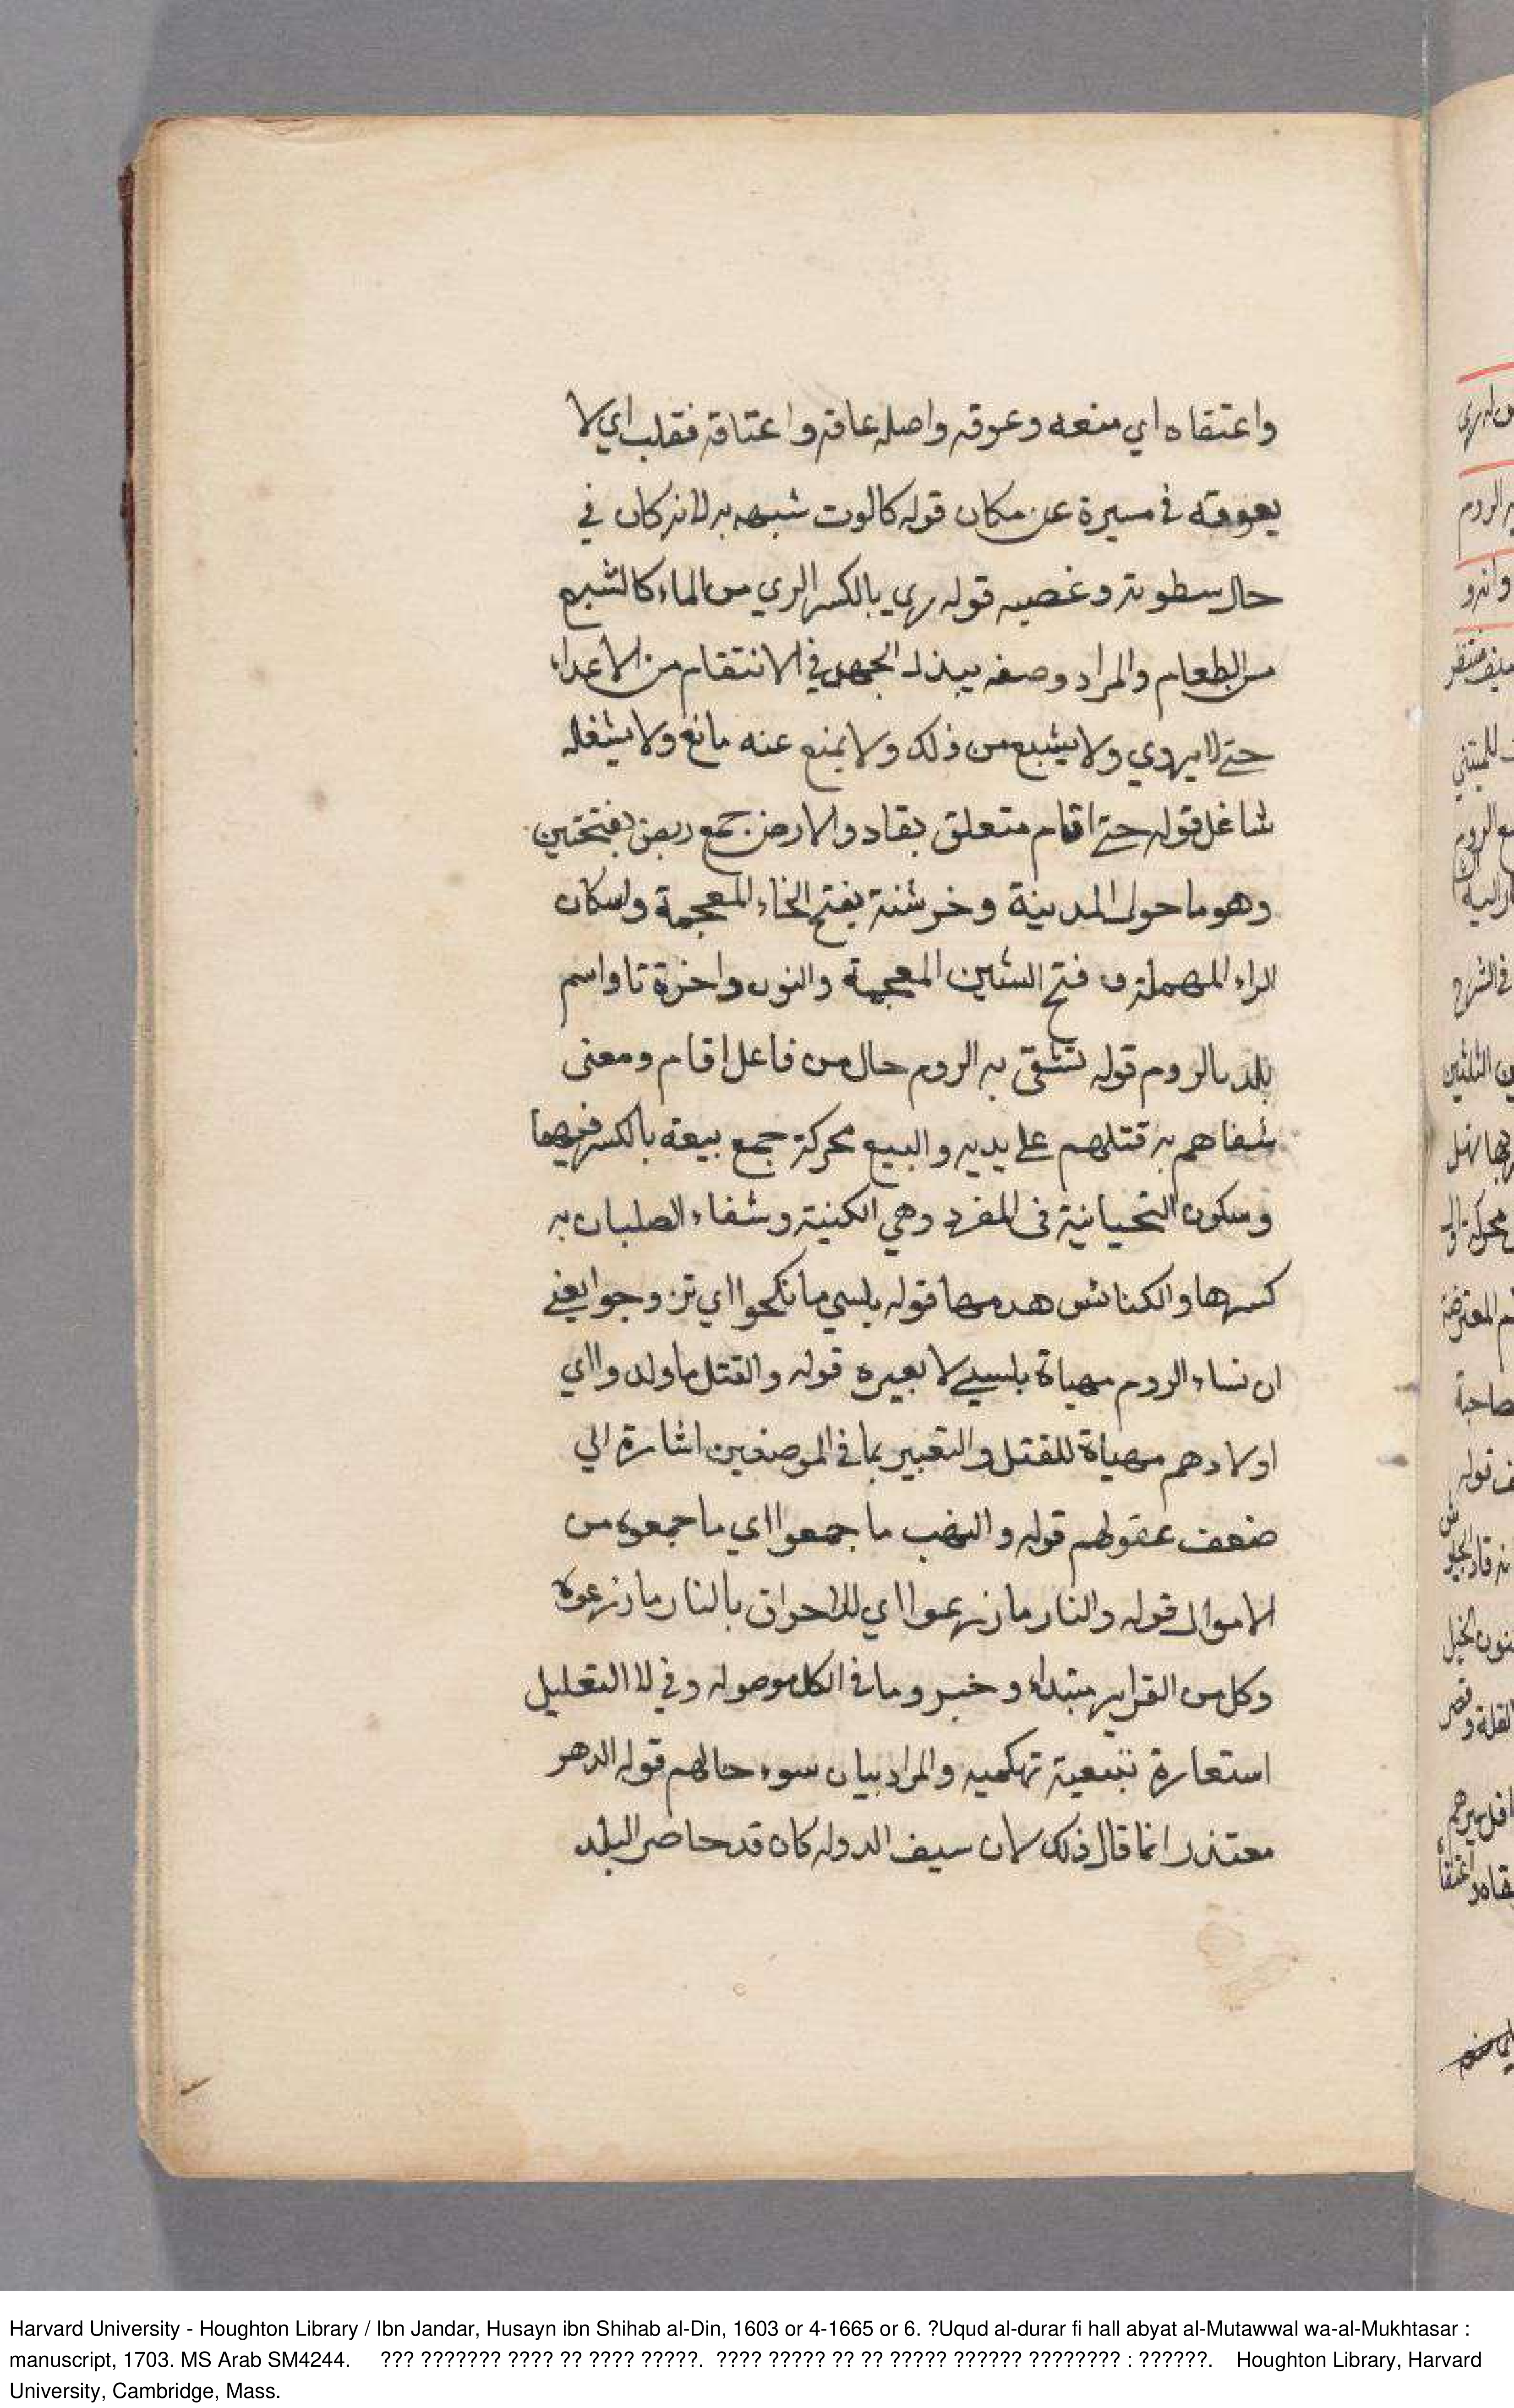 واعتقاه اي منعه وعوقه واصله عاقه واعتاقه فقلب اي لا
يعوقه في مسيرة عن مكان قوله كالموت شبهه به لانه كان في
حال سطوته وغضبه قوله ري بالكسر الري من الماء كالشبع
من الطعام والمراد وصفه ببذل الجهد في الانتقام من الاعداء
حتى لا يروي ولا يشبع من ذلك ولا يمنع عنه مانع ولا يشغله
شاغل قوله حتى اقام متعلق بقاد والارض جمع ربض بفتحتين
وهو ما حول المدينة وخرشنة بفتح الخاء المعجمة واسكان
الراء المهملة وفتح الشين المعجمة والنون واخرة تا واسم
بلد بالروم قوله تشقى به الروم حال من فاعل اقام ومعنى
شفاهم به قتلهم على يديه والبيع محركة جمع بيعة بالكسر فيهما
وسكون التحيانية فى المفرد وهي الكنية وشفاء الصلبان به
كسرها والكنائس هدمها قوله بلسبي ما نكحوا اي تزوجوا يعني
ان نساء الروم مهياة بلسبي لا بعيره قوله والقتل ما ولدوا اي
اولادهم مهياة للقتل والتعبير بما في الموضعين اشارة الي
ضعف عقولهم قوله والنهب ما جمعوا اي ما جمعوه من
الاموال قوله والنار ما زرعوا اي للاحراق بالنار ما زرعوه
وكل من القراين مبتداء وخبر وما في الكل موصوله وفي لا التعليل
استعارة تبعية تهكميه والمراد بيان سوء حالهم قوله الدهر
معتذر انما قال ذلك لان سيف الدوله كان قد حاصر البلد
Harvard University - Houghton Library / Ibn Jandar, Husayn ibn Shihab al-Din, 1603 or 4-1665 or 6. ?Uqud al-durar fi hall abyat al-Mutawwal wa-al-Mukhtasar :
manuscript, 1703. MS Arab SM4244. ??? ??????? ???? ?? ???? ?????. ???? ????? ?? ?? ????? ?????? ???????? : ??????. Houghton Library, Harvard
University, Cambridge, Mass.